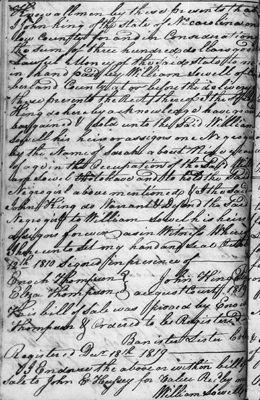 Know all men by these presents that
I John King of the State of N. Carolina
for and in Consideration
the sum of three hundred dollars good
Lawful Money of the said State to me
in hand paid by William Sowell of
County at or before the
these presents the Rect there of I the
King do hereby acknowledge have
bargained & sold unto the Said William
Sowell his heirs assigns one Negro
by the Name Sarah about
age in the of the Said
Sowell to have and to hold the Said
Negro above mentioned & I the Said
John King do Warrant & Defend the Said
Negro to William Sowell his heirs
assigns forever as in Witness Where
I here unto Set my hand and Seal
12th 1810 Signed in presence of
Enoch Thompson John King
Thompson August Court 1819
This bill of Sale was proved by Enoch
Thompson & Ordered to be Registered
Banister Lister
Registered Decr 18th 1819
I Endorse the above or within bill
Sale to John Hussey for Value Recd by
William Sowell